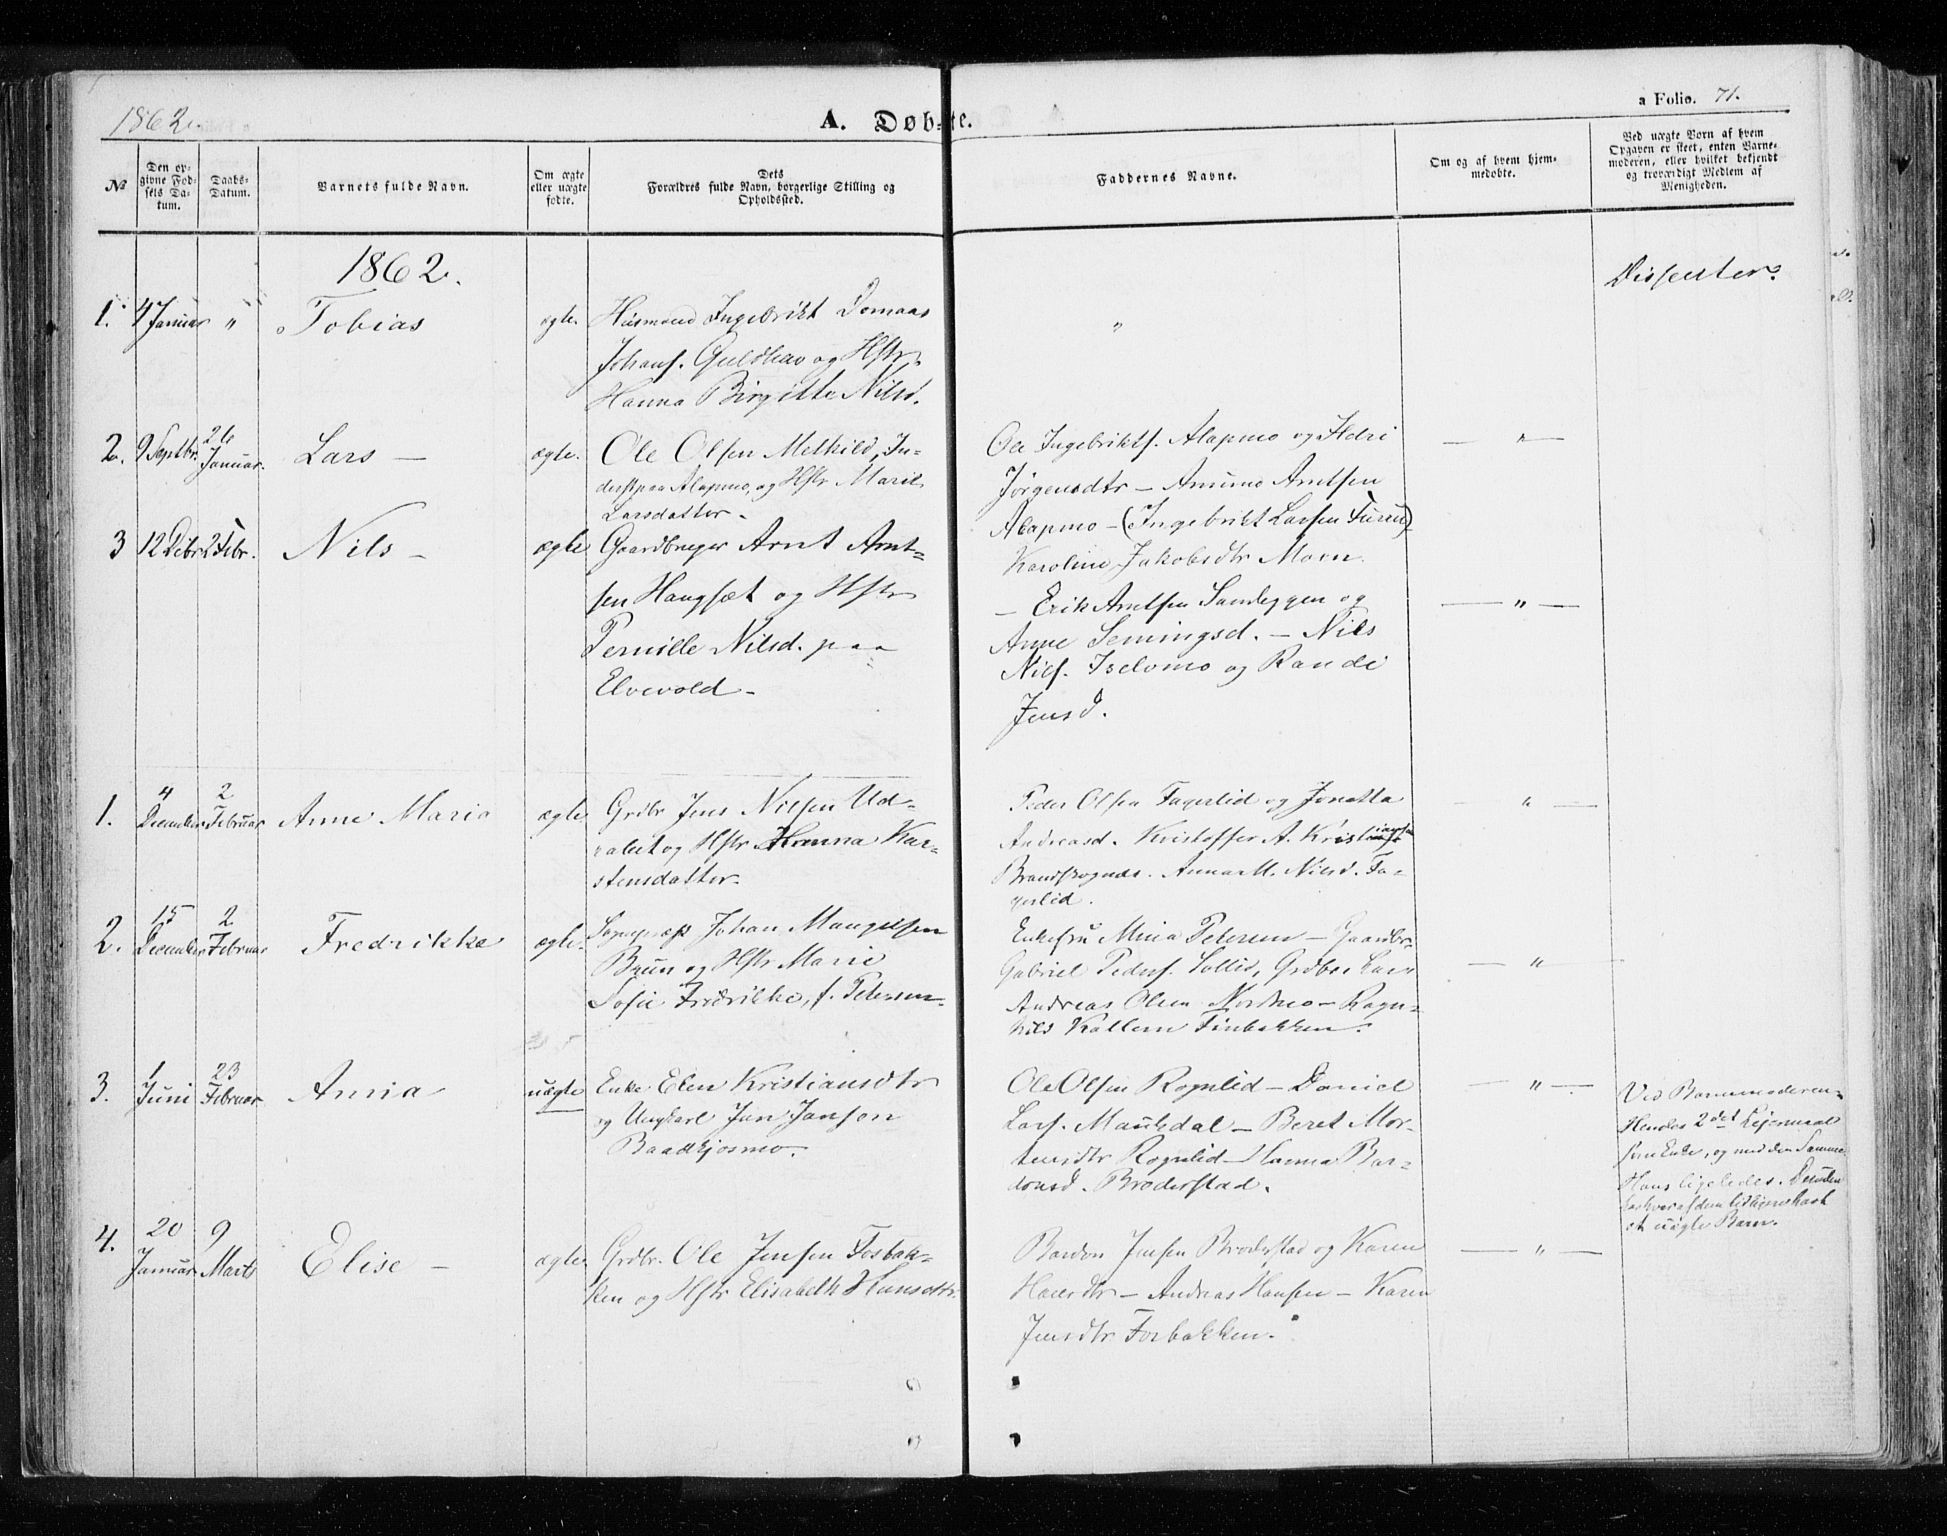 1862.
A. Døbte.
a Folio. 71.
№
Den opgivne Fødsels Datum.
Daabs-Datum.
Barnets fulde Navn.
Om ægte eller uægte fødte.
Dets Forældres fulde Navn, borgerlige Stilling og Opholdssted.
Faddernes Navne.
Om og af hvem hjemmedøbte.
Ved uægte Børn af hvem Opgaven er skeet, enten Barnemoderen, eller hvilket bekjendt og troværdigt Medlem af Menigheden.
1862.
1. 4 Januar " Tobias ægte.
Husmand Ingebrikt Domaas
Johans. Guldhav og Hstr.
Hanna Birgitte Nilsd.
"
Dissenter.
2. 9 Septbr. 26 Januar. Lars — ægte.
Ole Olsen Melhild, In-
derst paa Alapmo, og Hstr Marit
Larsdatter.
Ole Ingebrikts. Alapmo og Ildri
Jørgensdtr — Amund Arntsen
Alapmo — (Ingebrikt Larsen Furu)
Karoline Jakobsdtr Moen.
— " —
3 12 Dcbr 2 Febr. Nils — ægte
Gaardbruger Arnt Arnt-
sen Haugset og Hstr
Pernille Nilsd. paa
Elvevold —
— Erik Arntsen Sandeggen og
Anne Semingsd. — Nils
Nils. Iselvmo og Randi
Jensd.
— " —
1. 4 December 2 Februar Anne Maria ægte
Grdbr Jens Nilsen Ud-
rabet og Hstr Hanna Kar-
stensdatter.
Peder Olsen Fagerlid og Jonetta
Andreasd. Kristoffer A. Kristiansen
Brandskognes. Anna M. Nilsd. Fa-
gerlid.
— " —
2. 15 December 2 Februar Fredrikke ægte.
Sognepræst Johan Mangelsen
Brun og Hstr Marie
Sofie Fredrikke, f. Petersen
Enkefru Mina Petersen — Gaardbr.
Gabriel Peders. Sollid, Grdbr Lars
Andreas Olsen Nordmo — Ragn-
hild Kollem Finbakken.
— " —
3. 1 Juni 23 Februar Anna uægte
Enke Elen Kristiansdtr
og Ungkarl Jan Janson
Baadkjosmo.
Ole Olsen Rognlid — Daniel
Lars. Maukdal — Beret Mor-
tensdtr Rognlid — Hanna Bar-
donsd. Broderstad.
— " —
Ved Barnemoderen.
Hendes 2det Lejermaal
som Enke, og med den Samme.
Hans ligeledes. Desuden
har hver af dem tidligere havt
et uægte Barn.
4. 20 Januar 9 Marts Elise — ægte
Grdbr. Ole Jensen Fosbak-
ken og Hstr Elisabeth Hansdtr.
Bardon Jensen Broderstad og Karen
Hansdtr — Andreas Hansen — Karen
Jensdtr Fosbakken.
— " —